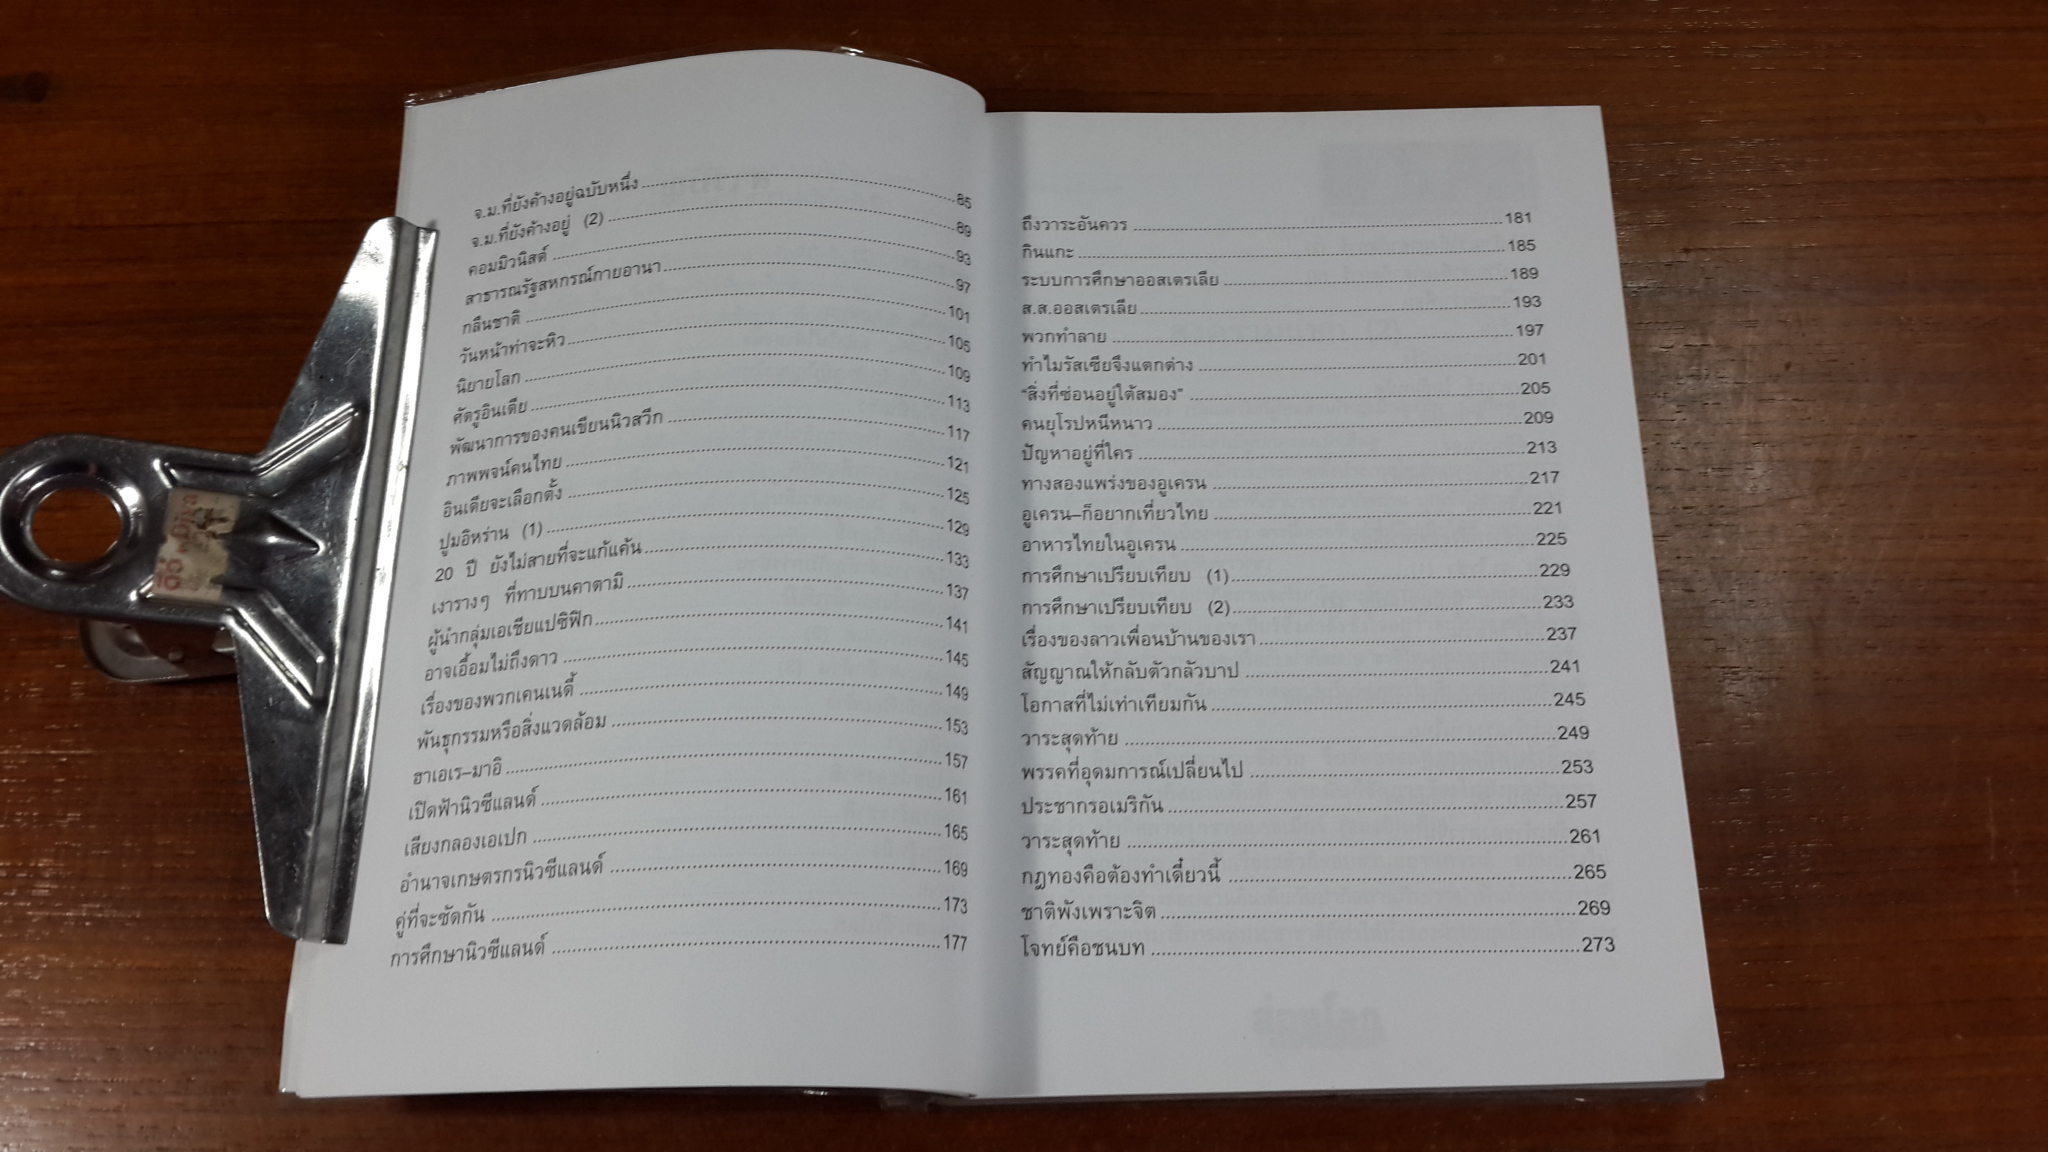 จ.ม.ที่ยังค้างอยู่ฉบับหนึ่ง 85
จ.ม.ที่ยังค้างอยู่ (2) 89
คอมมิวนิสต์ 93
สาธารณรัฐสหกรณ์กายอานา 97
กลืนชาติ 101
วันหน้าท่าจะหิว 105
นิยายโลก 109
ศัตรูอินเดีย 113
พัฒนาการของคนเขียนนิวสวีก 117
ภาพพจน์คนไทย 121
อินเดียจะเลือกตั้ง 125
ปูมอิหร่าน (1) 129
20 ปี ยังไม่สายที่จะแก้แค้น 133
เงารางๆ ที่ทาบบนคาตามิ 137
ผู้นำกลุ่มเอเชียแปซิฟิก 141
อาจเอื้อมไม่ถึงดาว 145
เรื่องของพวกเคนเนดี้ 149
พันธุกรรมหรือสิ่งแวดล้อม 153
ฮาเอเร–มาอิ 157
เปิดฟ้านิวซีแลนด์ 161
เสียงกลองเอเปก 165
อำนาจเกษตรกรนิวซีแลนด์ 169
คู่ที่จะซัดกัน 173
การศึกษานิวซีแลนด์ 177
ถึงวาระอันควร 181
กินแกะ 185
ระบบการศึกษาออสเตรเลีย 189
ส.ส.ออสเตรเลีย 193
พวกทำลาย 197
ทำไมรัสเซียจึงแตกต่าง 201
“สิ่งที่ซ่อนอยู่ใต้สมอง” 205
คนยุโรปหนีหนาว 209
ปัญหาอยู่ที่ใคร 213
ทางสองแพร่งของอูเครน 217
อูเครน–ก็อยากเที่ยวไทย 221
อาหารไทยในอูเครน 225
การศึกษาเปรียบเทียบ (1) 229
การศึกษาเปรียบเทียบ (2) 233
เรื่องของลาวเพื่อนบ้านของเรา 237
สัญญาณให้กลับตัวกลัวบาป 241
โอกาสที่ไม่เท่าเทียมกัน 245
วาระสุดท้าย 249
พรรคที่อุดมการณ์เปลี่ยนไป 253
ประชากรอเมริกัน 257
วาระสุดท้าย 261
กฎทองคือต้องทำเดี๋ยวนี้ 265
ชาติพังเพราะจิต 269
โจทย์คือชนบท 273